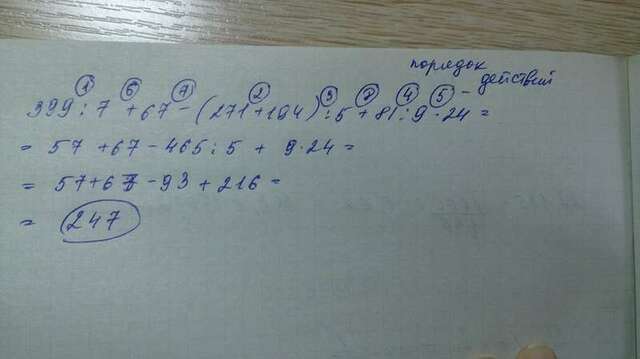 порядок
действий
① ⑥ ⑦ ② ③ ④ ⑤ –
399:7+67-(271+194):5+81:9·24=
= 57+67-465:5+9·24=
= 57+67-93+216=
= 247